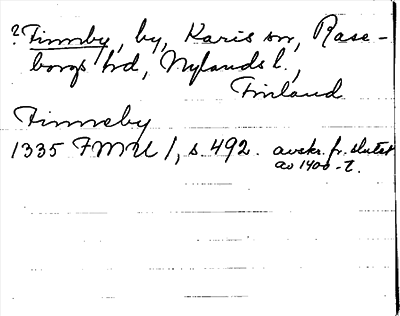 ? Finnby, by, Karis sn, Rase-
borgs hd, Nylands l.,
Finland
Finneby
1335 FMU 1, s. 492. avskr. fr. slutet
av 1400-t.